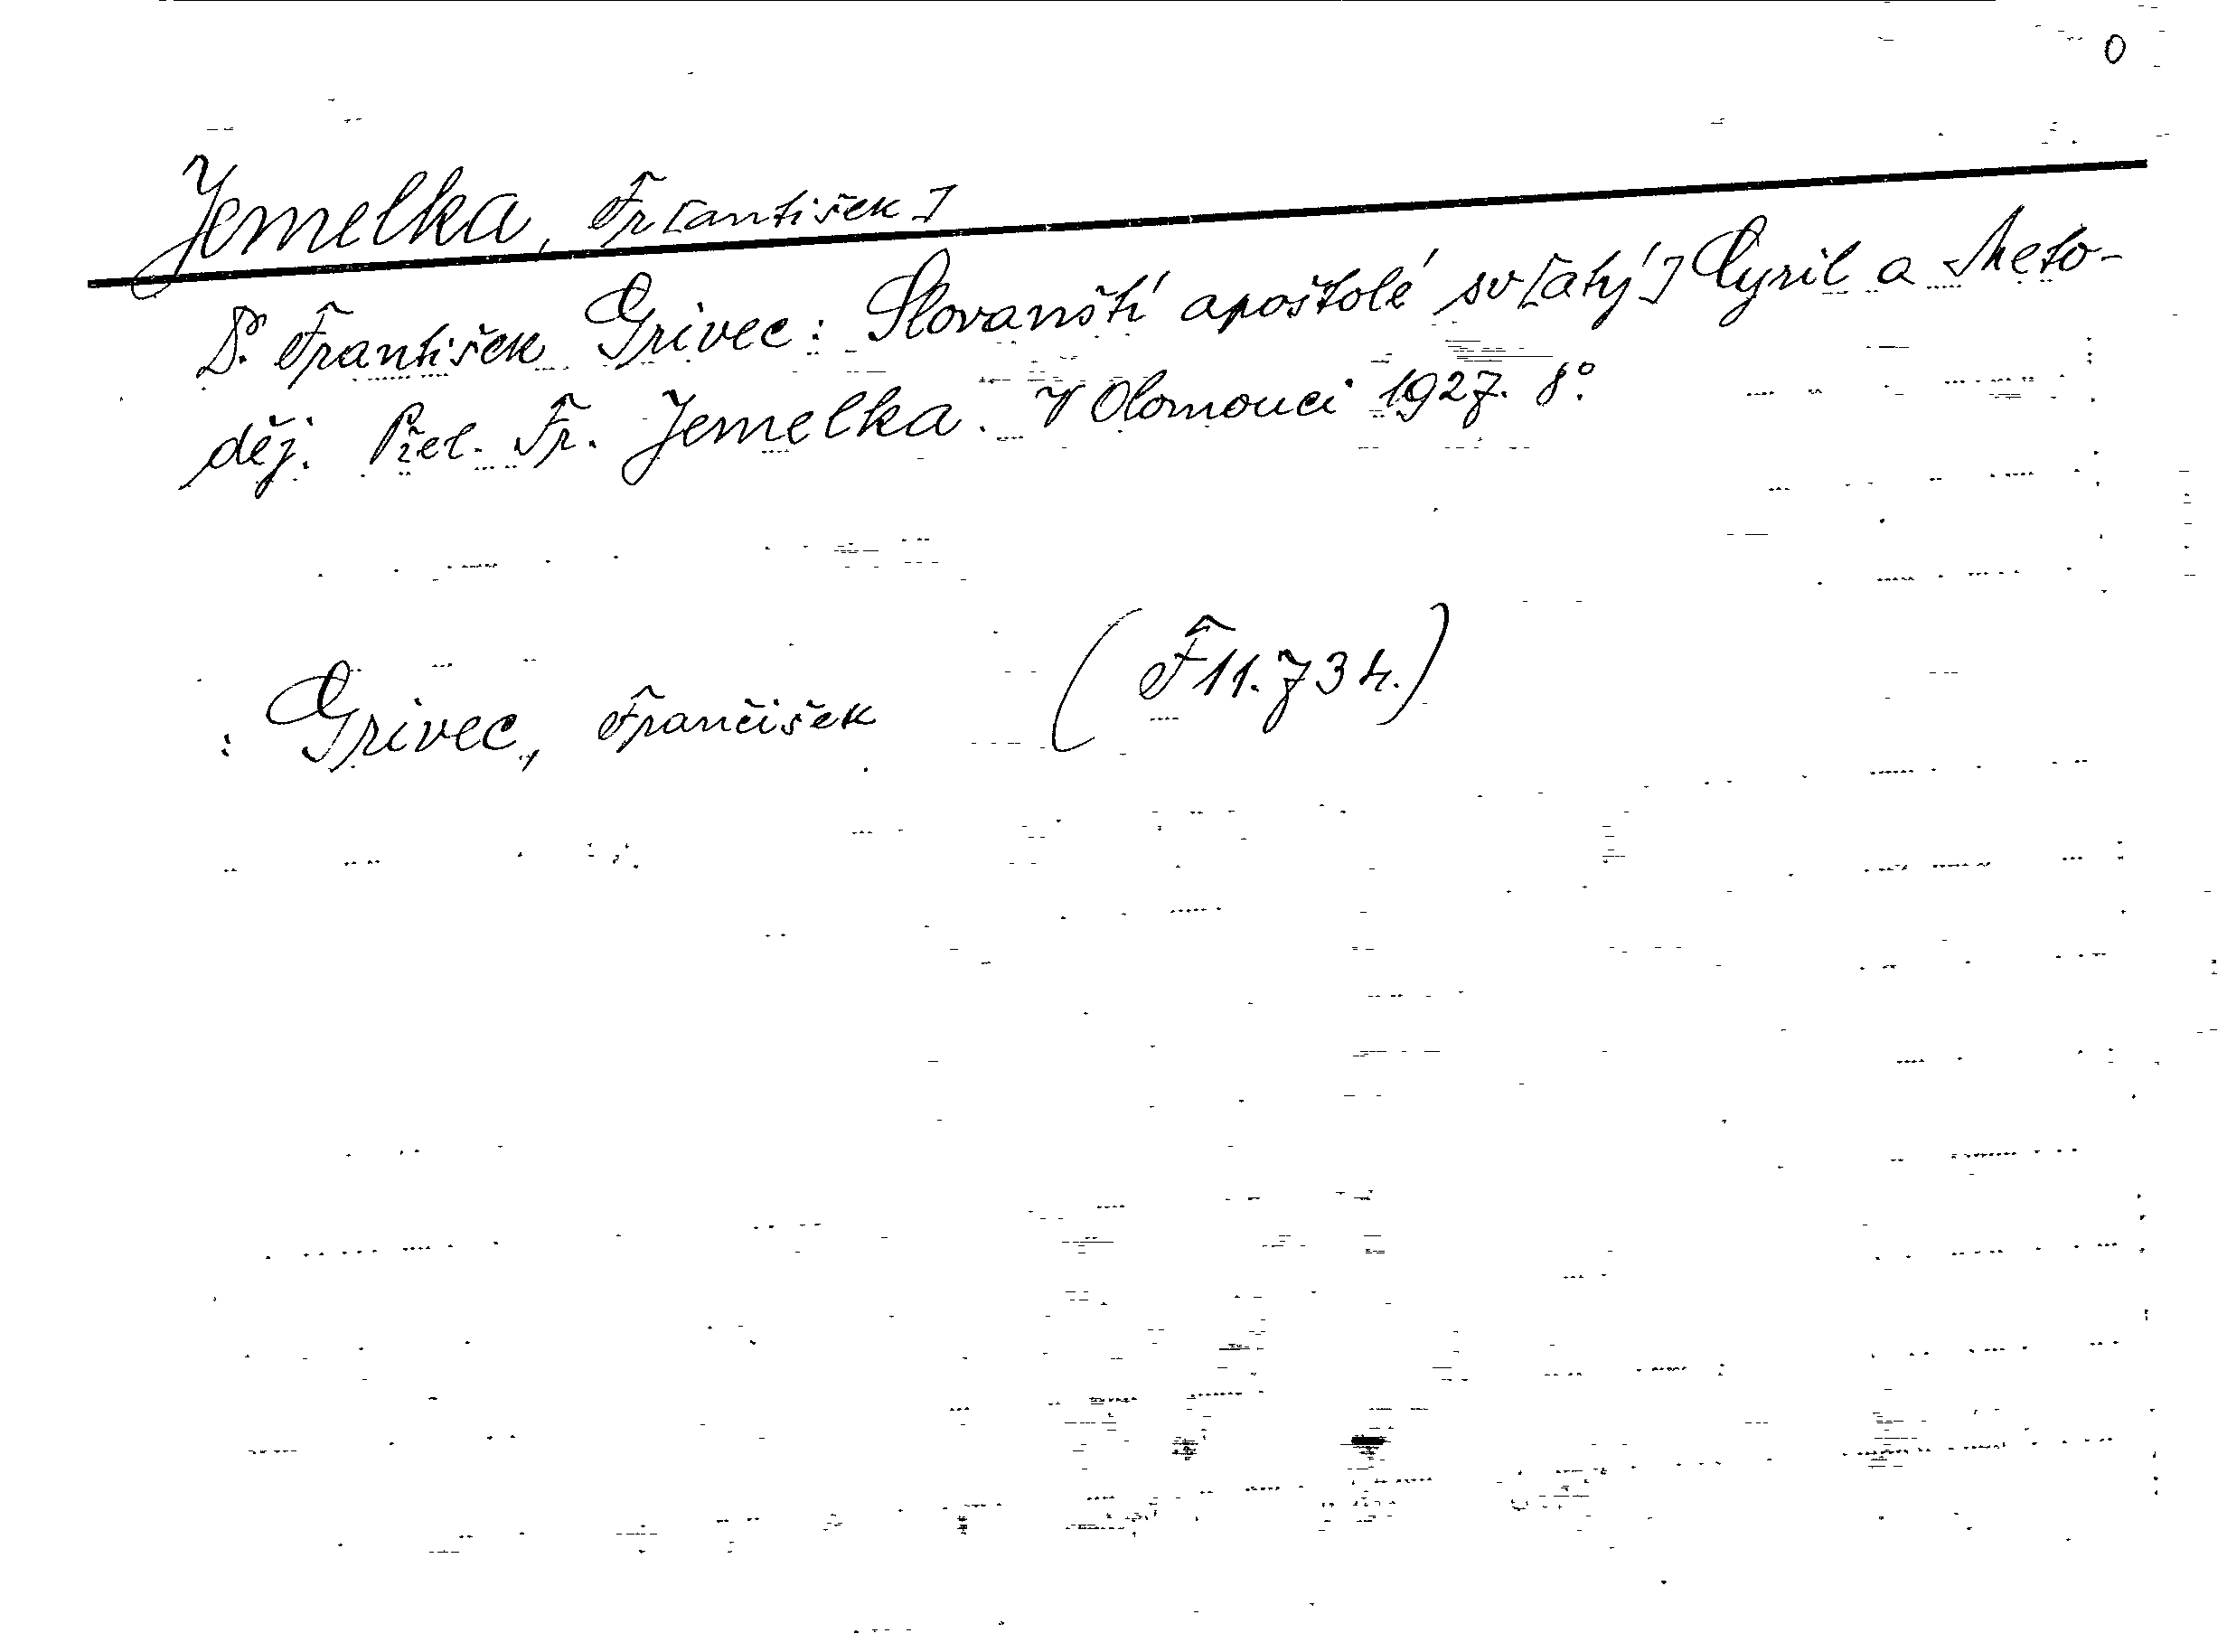 0
Jemelka, Fr[antišek]
Dr. František Grivec: Slovanští apoštolé sv[atý] Cyril a Meto-
děj. Přel. Fr. Jemelka. V Olomouci 1927. 8°.
: Grivec, Frančišek (F 11.734.)